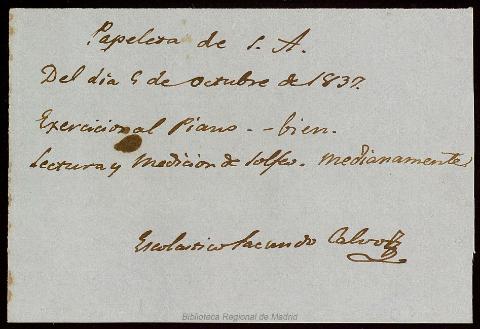 Papeleta de S. A.
Del dia 5 de octubre de 1837.
Exercicios al Piano. - bien.
Lectura y Medicion de Solfeo. medianamente
Escolastico Facundo Calvo
Biblioteca Regional de Madrid